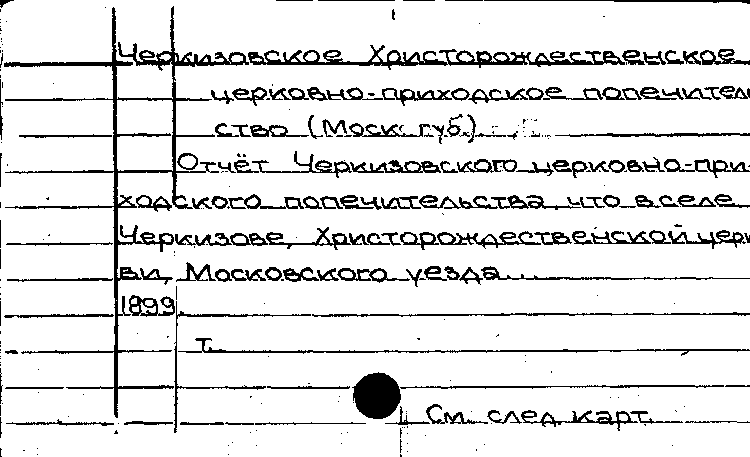 Черкизовское Христорождественское
церковно-приходское попечитель
ство (Моск. губ.)
Отчёт Черкизовского церковно-при-
ходского попечительства, что в селе
Черкизове, Христорождественской церк
ви, Московского уезда...
1899.
т.
См. след. карт.